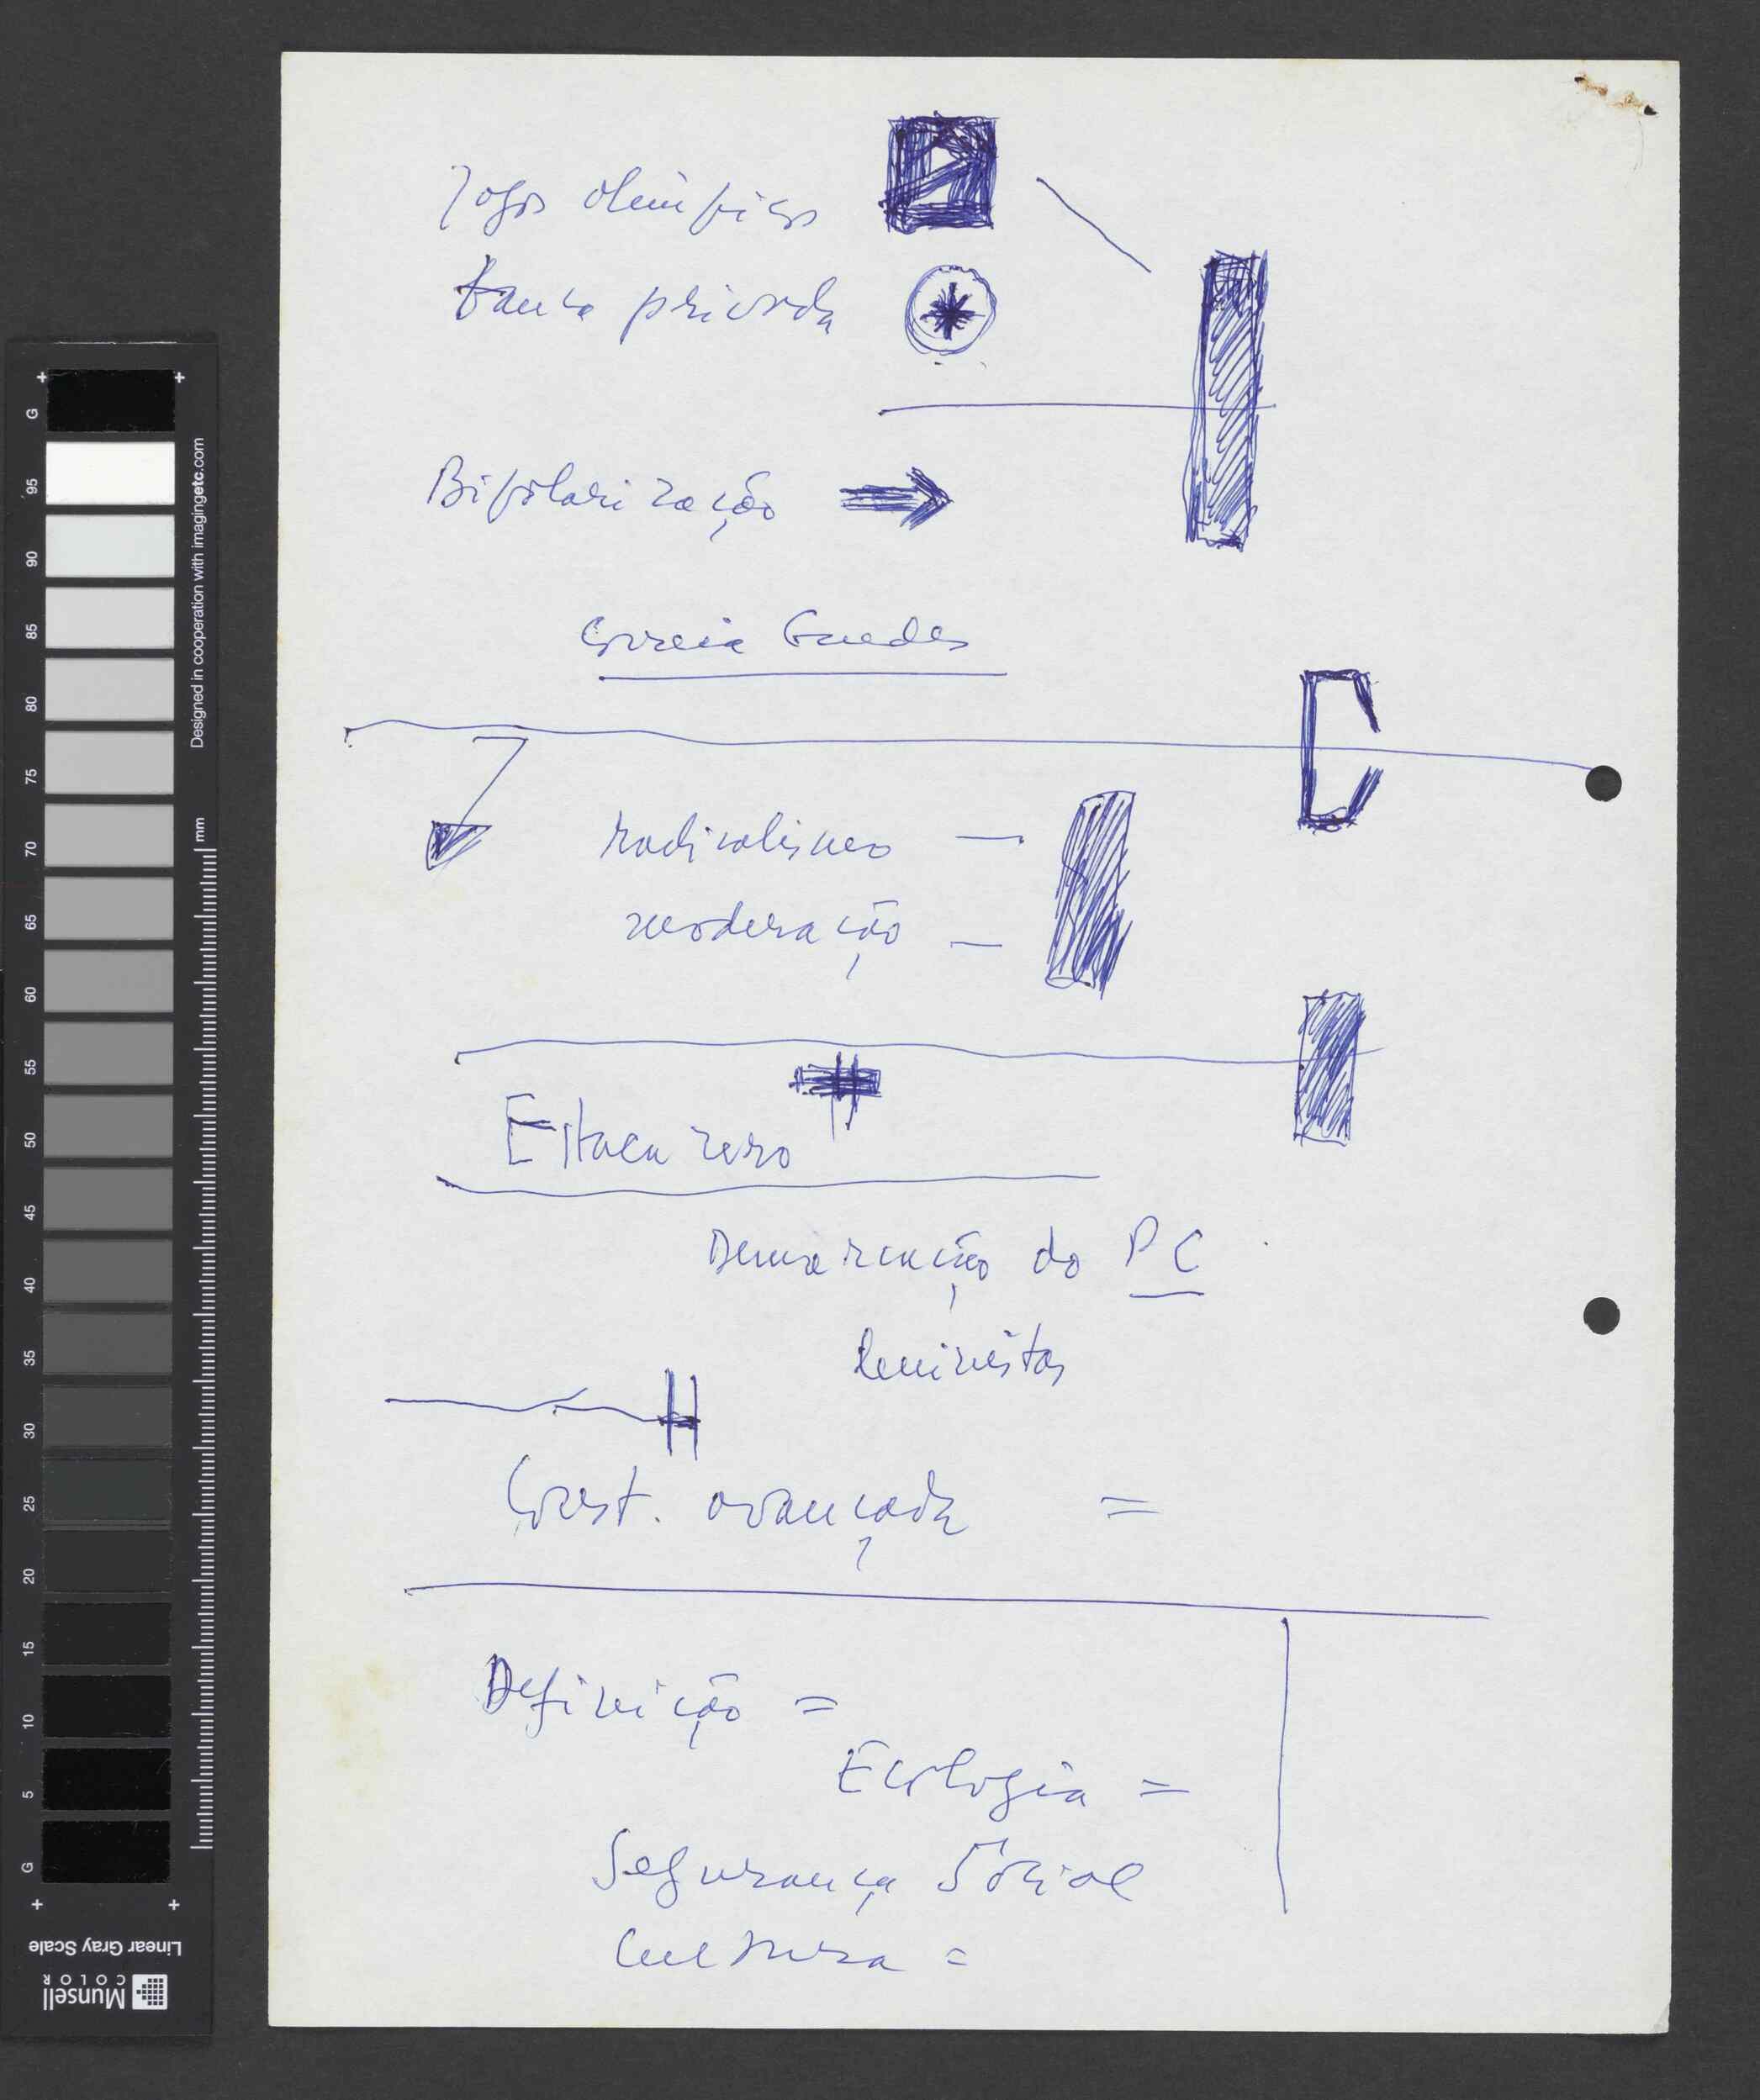 Jogos olímpicos
banca privada
Bipolarização
Correia Guedes
radicalismo —
moderação —
Estaca zero
Demarcação do PC
leninistas
Const. avançada =
Definição =
Ecologia =
Segurança Social
Cultura =
G
95
90
85
80
75
70
65
60
55
50
45
40
35
30
25
20
15
10
5
G
mm
Designed in cooperation with imagingetc.com
Linear Gray Scale
Munsell
COLOR